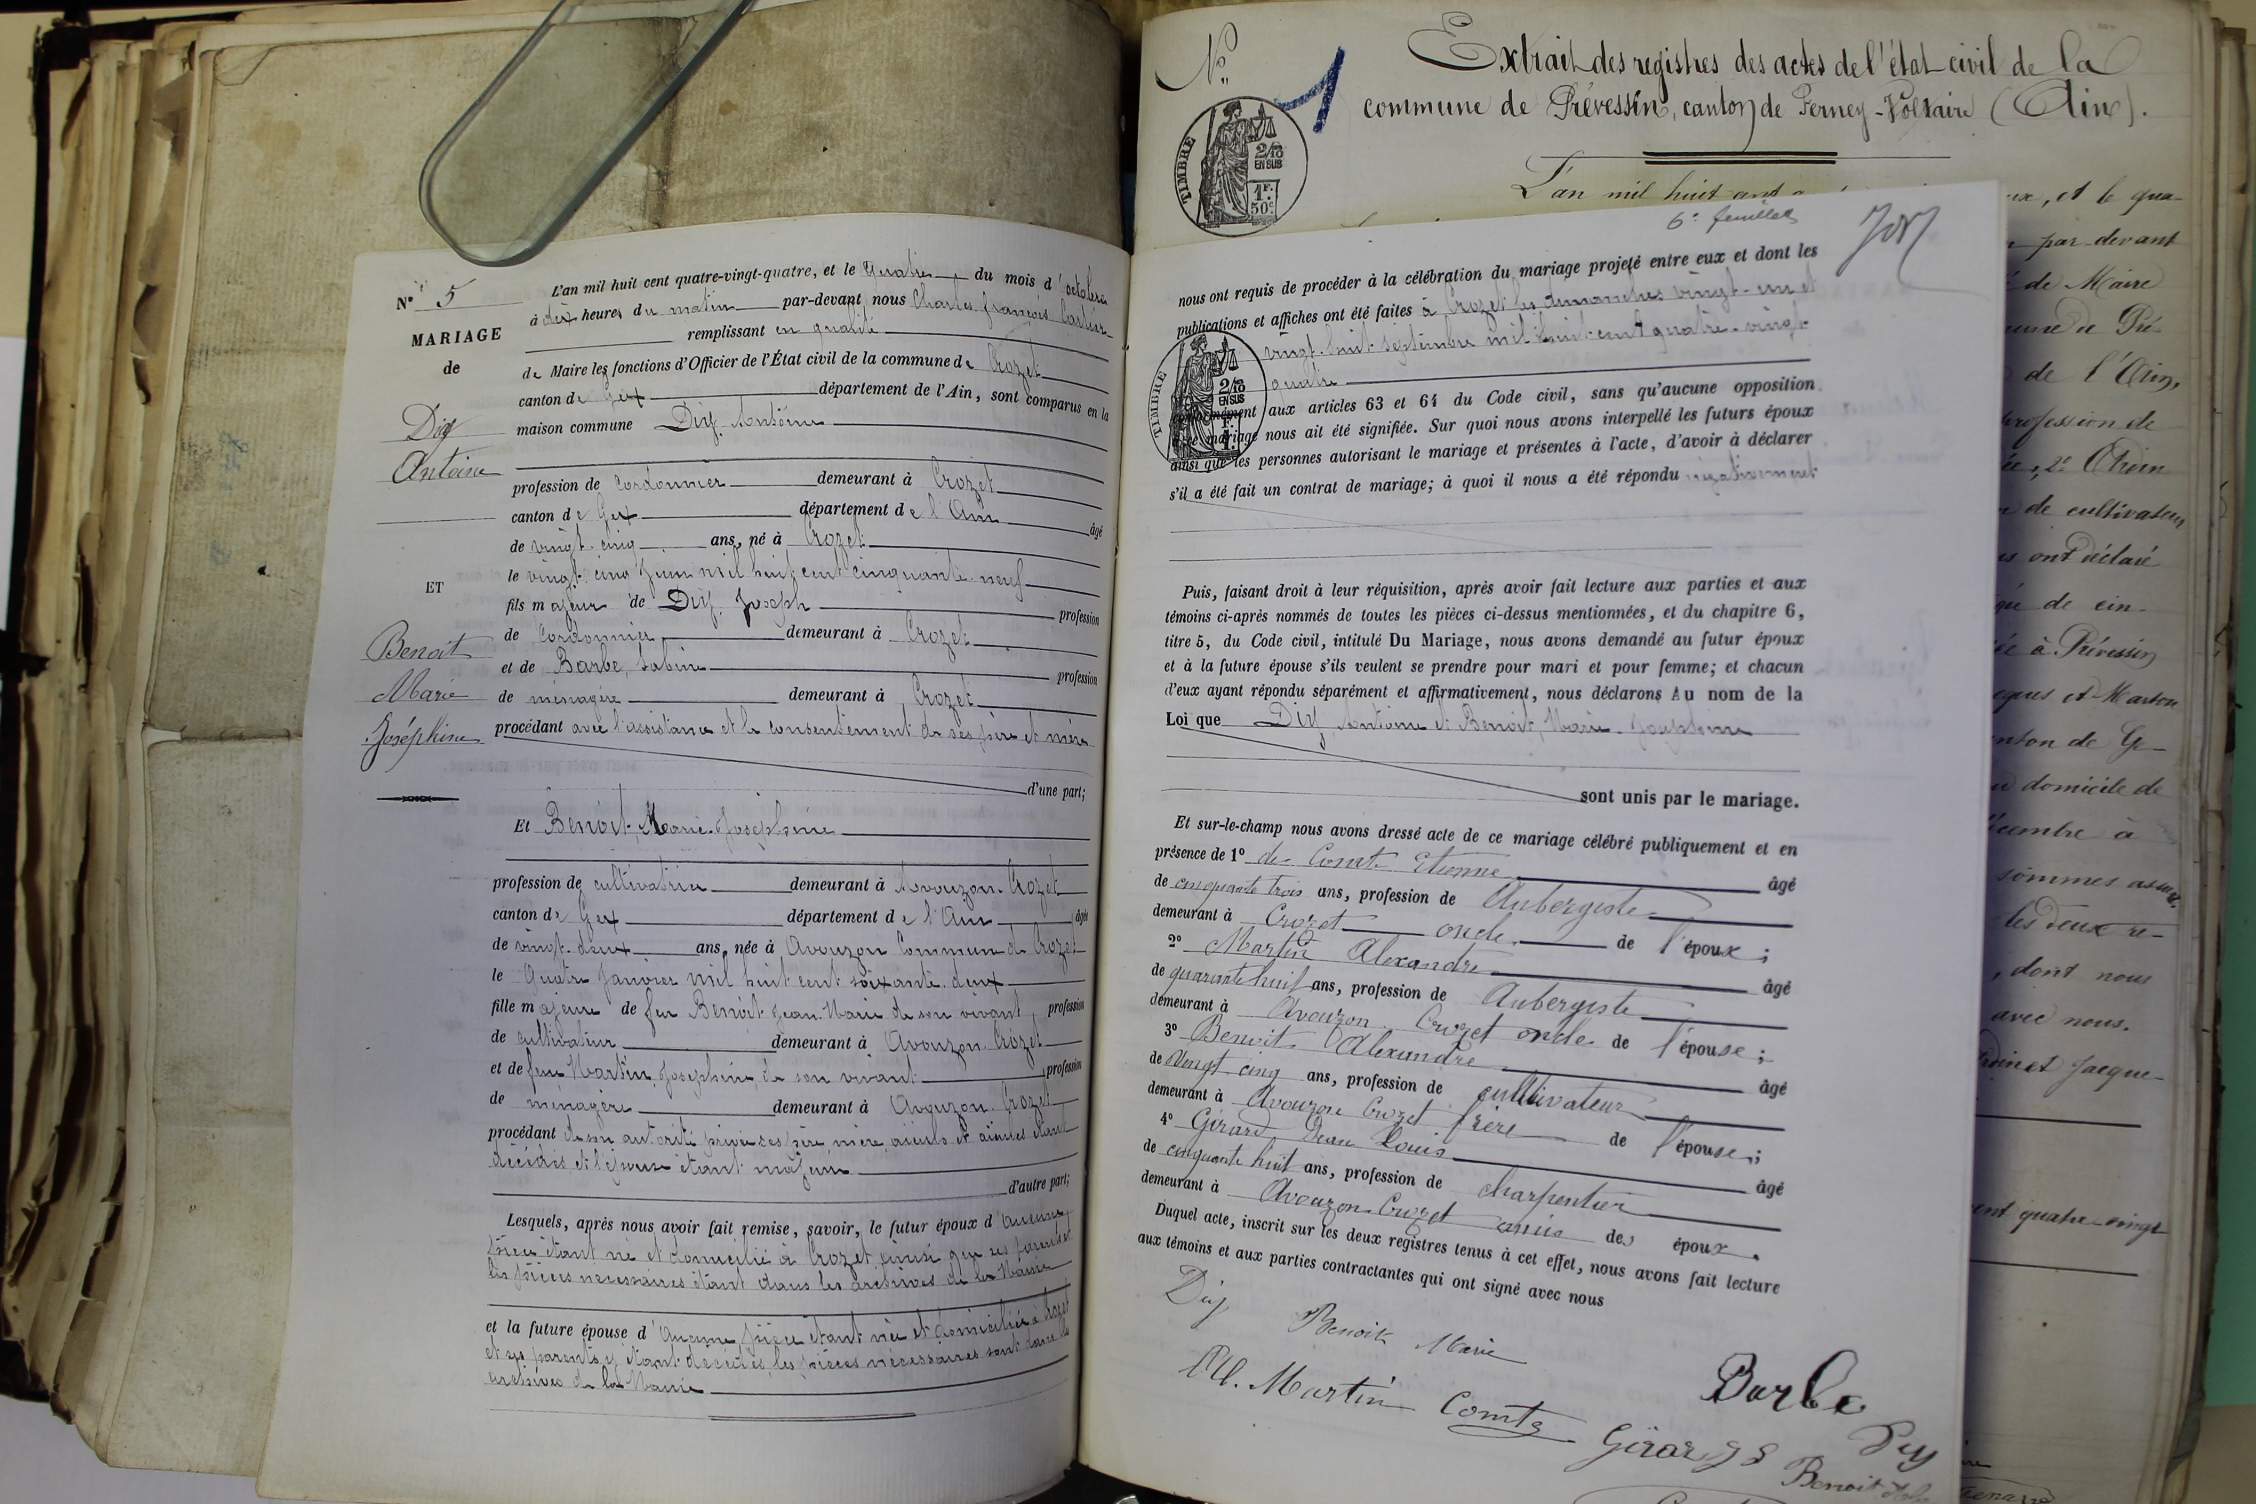 N° 5
MARIAGE
de
Diy
Antoine
ET
Benoit
Marie
Joséphine
L'an mil huit cent quatre-vingt-quatre, et le quatre du mois d'octobre
à dix heures du matin par-devant nous Charles François
remplissant en qualité
de Maire les fonctions d'Officier de l'État civil de la commune de Crozet
canton de Gex département de l'Ain, sont comparus en la
maison commune Diy Antoine
profession de cordonnier demeurant à Crozet
canton de Gex département de l'Ain âgé
de vingt-cinq ans, né à Crozet
le vingt-cinq juin mil huit cent cinquante-neuf
fils majeur de Diy Joseph profession
de cordonnier demeurant à Crozet
et de Barbe, Sabine profession
de ménagère demeurant à Crozet
procédant avec l'assistance et le consentement de ses père et mère
d'une part;
Et Benoit, Marie-Joséphine
profession de cultivatrice demeurant à Avouzon-Crozet
canton de Gex département de l'Ain âgée
de vingt-deux ans, née à Avouzon Commune de Crozet
le quatre janvier mil huit cent soixante-deux
fille majeure de feu Benoit Jean-Marie de son vivant, profession
de cultivateur demeurant à Avouzon Crozet
et de feue Martin, Joséphine, de son vivant profession
de ménagère demeurant à Avouzon-Crozet
procédant de son autorité privée ses père, mère, aïeuls et aïeules étant
décédés et l'épouse étant majeure
d'autre part;
Lesquels, après nous avoir fait remise, savoir, le futur époux d'aucune
pièce étant né et domicilié à Crozet, ainsi que ses parents et
les pièces nécessaires étant dans les archives de la Mairie
et la future épouse d'aucune pièce étant née et domiciliée à Crozet
et ses parents y étant décédés, les pièces nécessaires sont dans les
archives de la Mairie
N° 1
Extrait des registres des actes de l'état civil de la
commune de Prévessin, canton de Ferney-Voltaire (Ain).
TIMBRE
2/10
EN SUS
1F.
50c
L'an mil huit cent
6e feuillet
nous ont requis de procéder à la célébration du mariage projeté entre eux et dont les
publications et affiches ont été faites à Crozet les dimanches vingt-un et
vingt-huit septembre mil huit cent quatre-vingt-
quatre
TIMBRE
2/10
EN SUS
conformément aux articles 63 et 64 du Code civil, sans qu'aucune opposition
mariage nous ait été signifiée. Sur quoi nous avons interpellé les futurs époux
ainsi que les personnes autorisant le mariage et présentes à l'acte, d'avoir à déclarer
s'il a été fait un contrat de mariage; à quoi il nous a été répondu négativement
Puis, faisant droit à leur réquisition, après avoir fait lecture aux parties et aux
témoins ci-après nommés de toutes les pièces ci-dessus mentionnées, et du chapitre 6,
titre 5, du Code civil, intitulé Du Mariage, nous avons demandé au futur époux
et à la future épouse s'ils veulent se prendre pour mari et pour femme; et chacun
d'eux ayant répondu séparément et affirmativement, nous déclarons Au nom de la
Loi que Diy Antoine et Benoit, Marie-Joséphine
sont unis par le mariage.
Et sur-le-champ nous avons dressé acte de ce mariage célébré publiquement et en
présence de 1° de Comte Etienne âgé
de cinquante trois ans, profession de Aubergiste
demeurant à Crozet oncle de l'époux;
2° Martin Alexandre âgé
de quarante huit ans, profession de Aubergiste
demeurant à Avouzon Crozet oncle de l'épouse;
3° Benoit Alexandre âgé
de vingt cinq ans, profession de cultivateur
demeurant à Avouzon Crozet frère de l'épouse;
4° Girard Jean Louis âgé
de cinquante huit ans, profession de charpentier
demeurant à Avouzon-Crozet amis des époux.
Duquel acte, inscrit sur les deux registres tenus à cet effet, nous avons fait lecture
aux témoins et aux parties contractantes qui ont signé avec nous
Diy Benoit Marie
Al. Martin Comte Barbe
Girard Diy
Benoit
ux, et le qua-
par-devant
de Maire
de l'Ain,
profession de
de cultivateur
ont déclaré
de cin-
à Prévessin
domicile de
sommes assu-
les deux re-
, dont nous
avec nous.
Jacque-
quatre-vingt